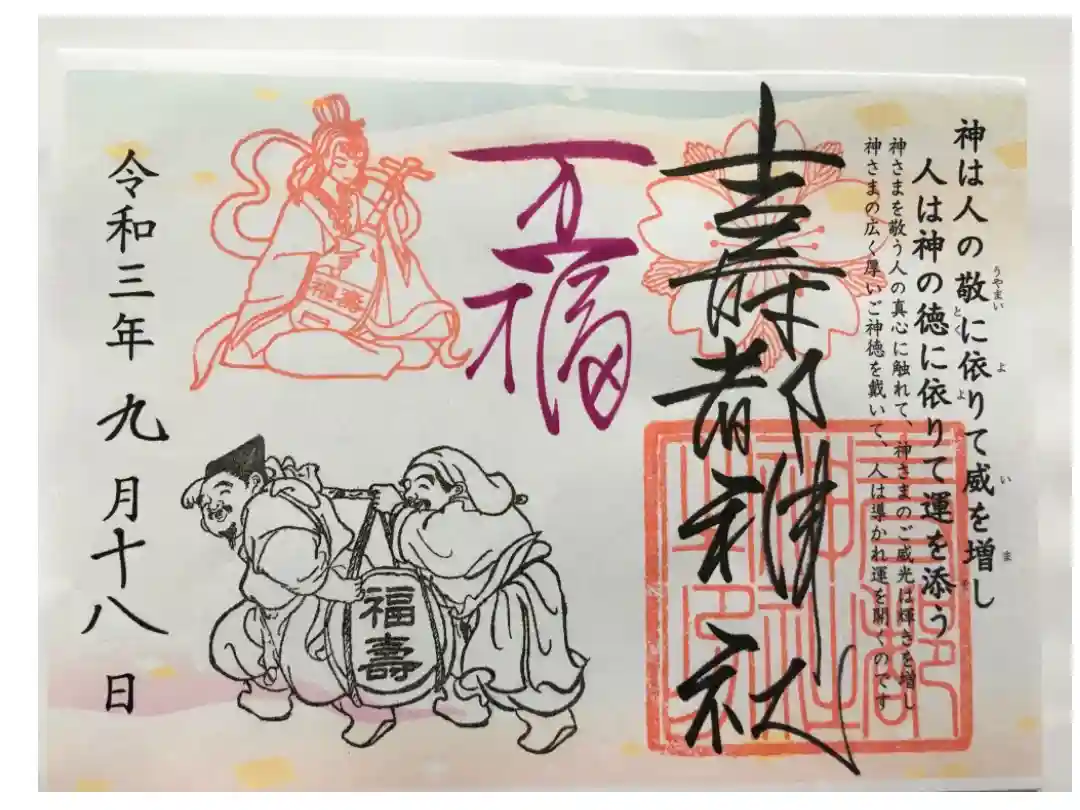 神は人の敬に依りて威を増し
うやまい よ い ま
人は神の徳に依りて運を添う
とく よ そ
神さまを敬う人の真心に触れて、神さまのご威光は輝きを増し
神さまの広く厚いご神徳を戴いて、人は導かれ運を開くのです
壽都神社
壽都
神社
之印
五福
福壽
福壽
令和三年九月十八日